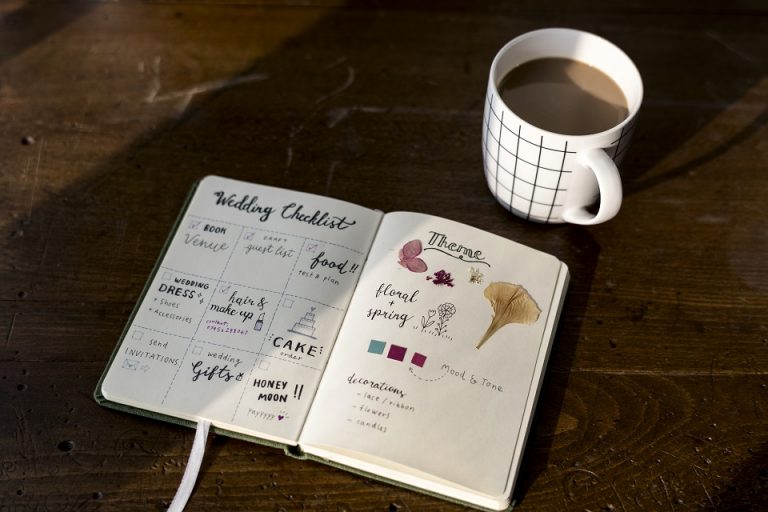 Wedding Checklist
BOOK
Venue
DRAFT
guest list
food!!
test & plan
WEDDING
DRESS +
+ Shoes
+ Accessories
hair &
make up
contact:
CAKE
order
send
INVITATIONS
wedding
Gifts
HONEY
MOON !!
yayyyyy
Theme
floral
+
spring
Mood & Tone
decorations
- lace / ribbon
- flowers
- candles